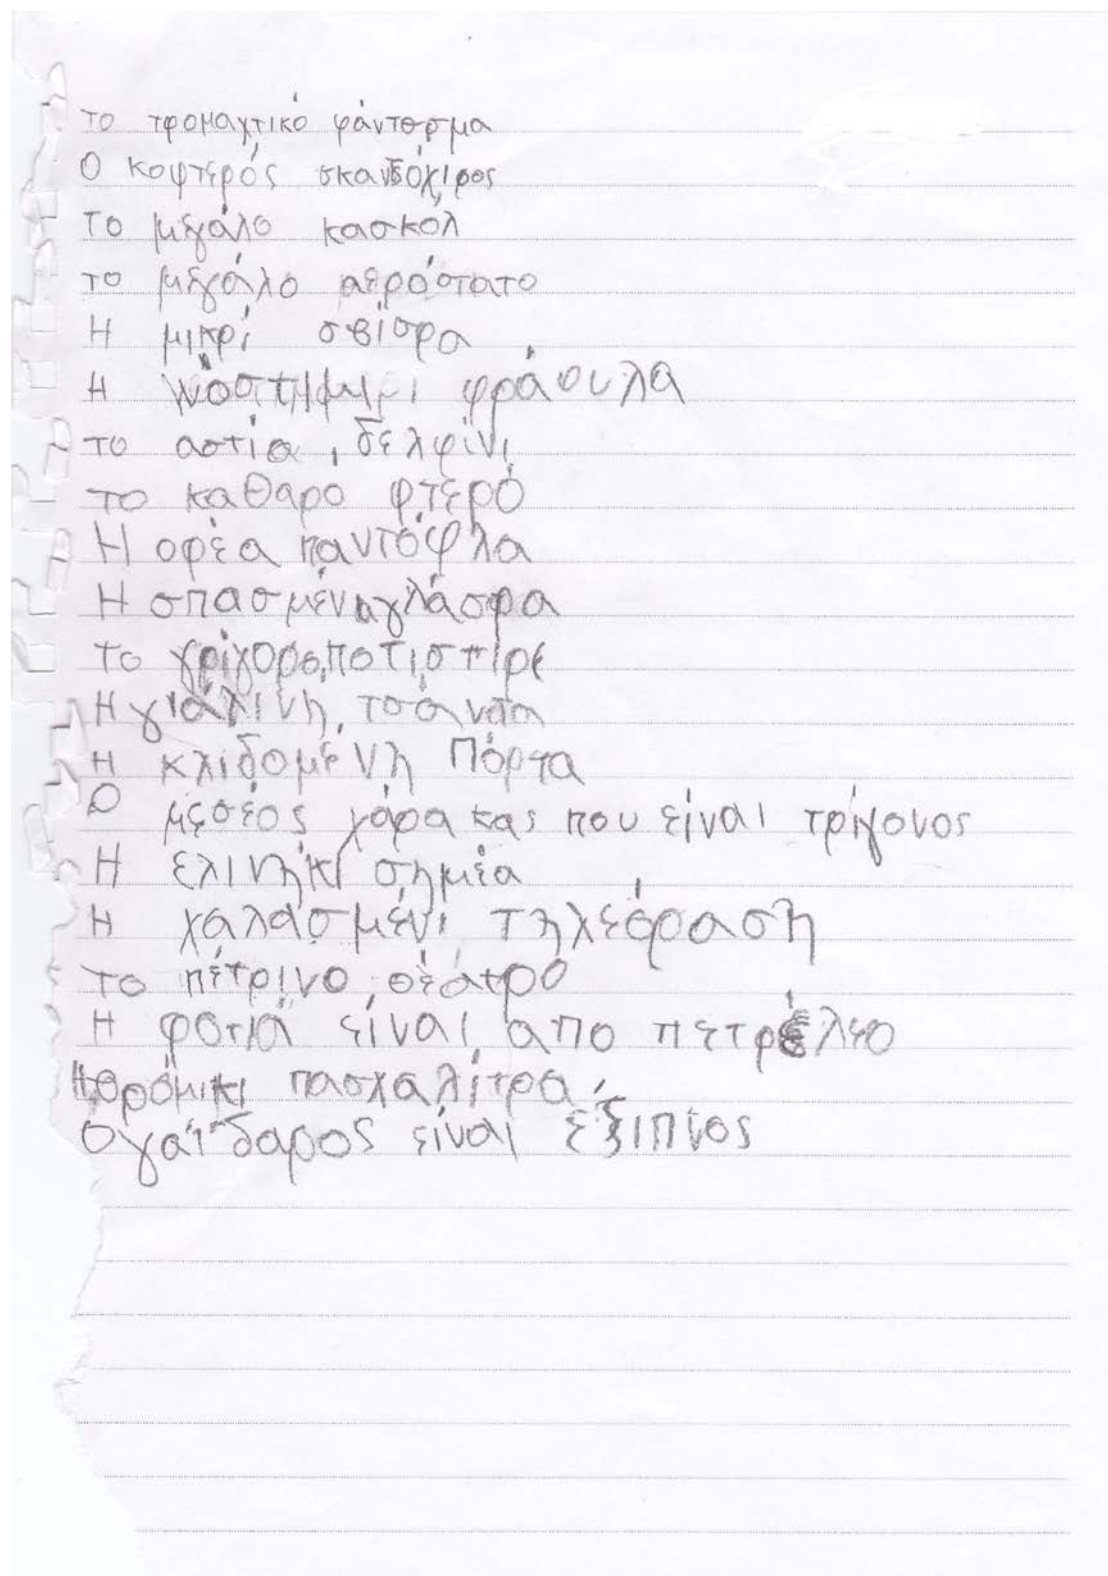 το τρομαχτικό φάντασμα
Ο κοφτερός σκαντζόχιρος
Το μεγάλο κασκόλ
το μεγάλο αερόστατο
Η μικρί σβίσρα
Η φράουλα
το αστία δελφίνι
το καθαρο φτερό
Η ορέα παντόφλα
Η σπασμένη γλάσρα
το γρίγορο ποτιστίρι
Η γιάλινη τσάντα
Η κλιδομένη πόρτα
Ο μεσέος χάρακας που είναι τρίγονος
Η ελινηκί σημέα
Η χαλασμένι τηλεόραση
το πέτρινο θέατρο
Η φοτιά είναι απο πετρέλεο
πασχαλίτρα
Ο γαϊδαρος είναι έξιπνος